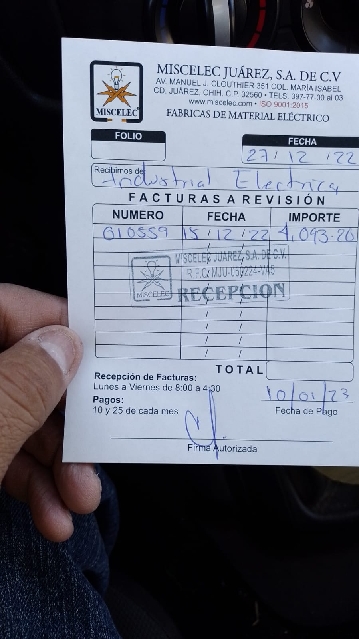 MISCELEC
MISCELEC JUÁREZ, S.A. DE C.V
AV. MANUEL J. CLOUTHIER 351 COL. MARÍA ISABEL
CD. JUÁREZ, CHIH. C.P. 32560 • TELS. 697-77-00 al 03
www.miscelec.com • ISO 9001:2015
FABRICAS DE MATERIAL ELÉCTRICO
FOLIO
FECHA
27 / 12 / 22
Recibimos de
Industrial Electrica
FACTURAS A REVISIÓN
NUMERO FECHA IMPORTE
G10559 15 / 12 / 22 4,093-20
MISCELEC JUAREZ, S.A. DE C.V.
MISCELEC
RECEPCION
TOTAL
Recepción de Facturas:
Lunes a Viernes de 8:00 a 4:30
10/01/23
Pagos:
Fecha de Pago
10 y 25 de cada mes
Firma Autorizada